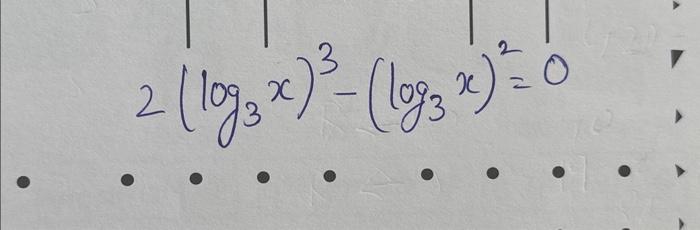 2(log₃x)³-(log₃x)²=0